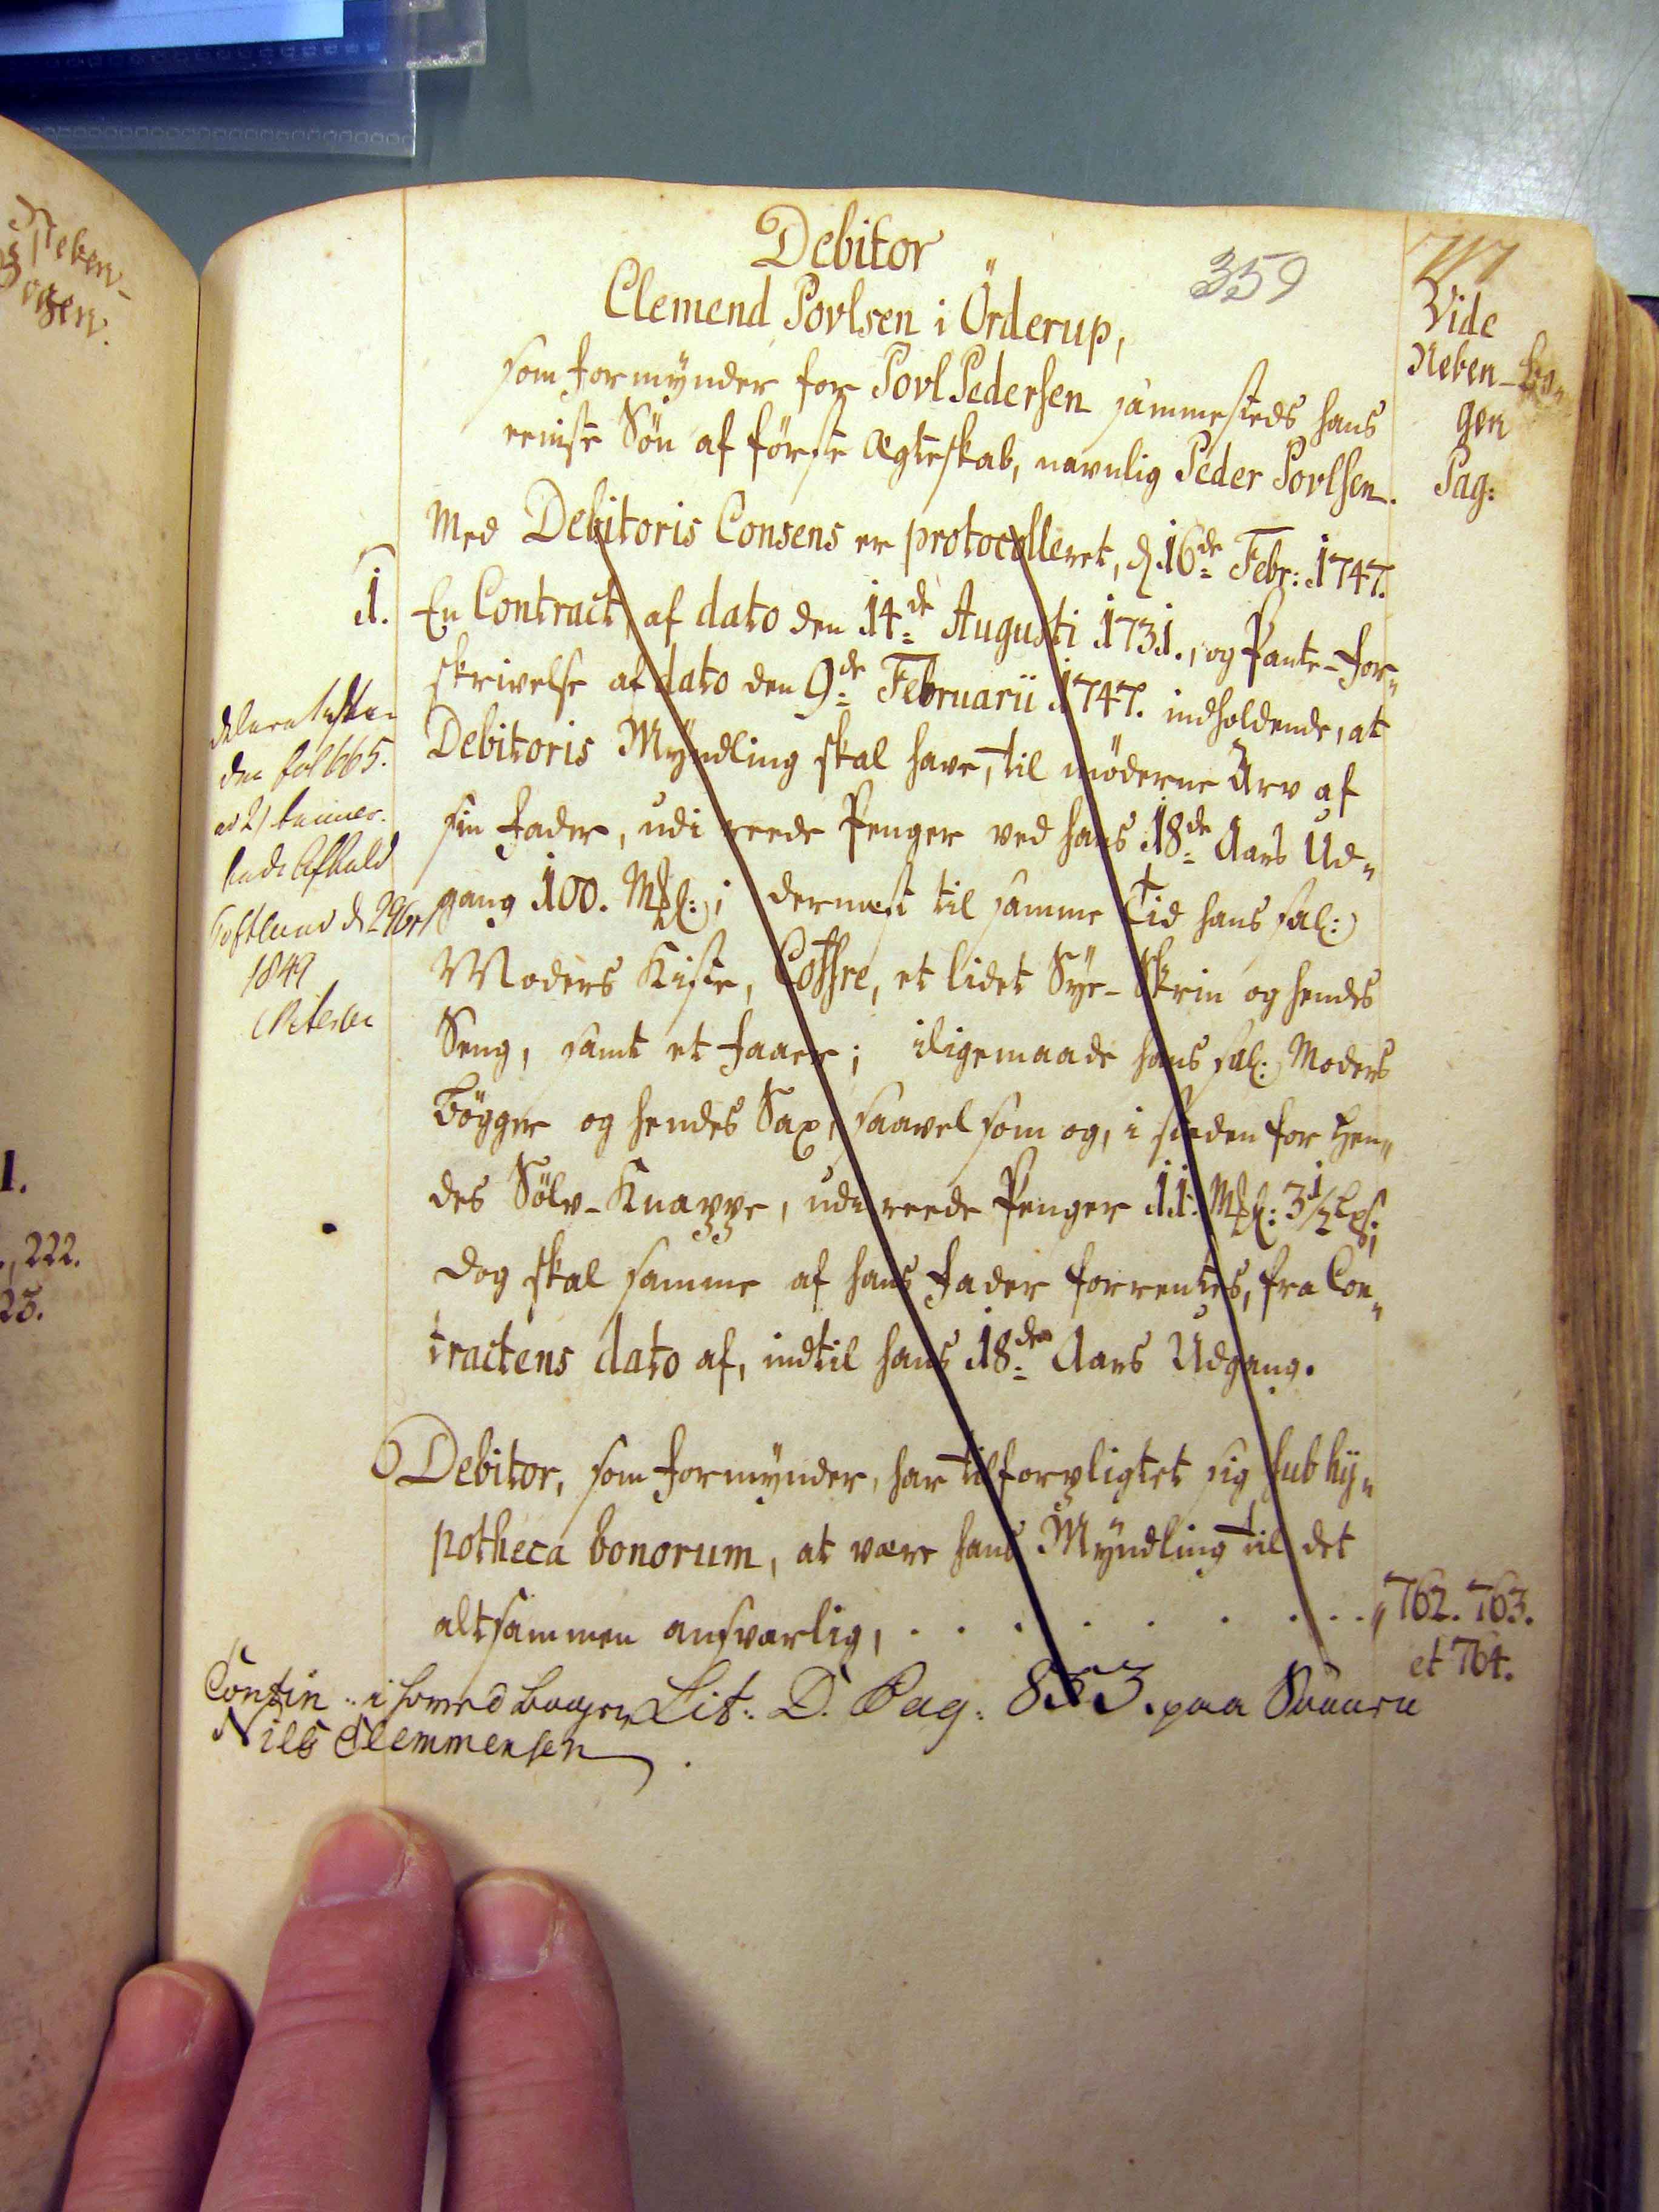 Debitor
359
Clemend Povlsen i Örderup,
som Formÿnder for Povl Pedersen sammesteds hans
eeniste Sön af förste Ægteskab, navnlig Peder Povlsen.
Vide
Neben-Bo„
gen
Pag:
Med Debitoris Consens er protocolleret, d 16de Febr: 1747.
1. En Contract af dato den 14de Augusti 1731., og Pante-For„
skrivelse af dato den 9de Februarii 1747. indholdende, at
Debitoris Mÿndling skal have, til möderne Arv af
sin Fader, udi reede Penger ved hans 18de Aars Ud„
gang 100. Mkl:; dernæst til samme Tid hans sal:
Moders Kiste, Coffre, et lidet Sÿe-Skrin og hendes
Seng, samt et Faar; iligemaade hans sal: Moders
Bögger og hendes Sax, saavelsom og, i steden for hen„
des Sölv-Knappe, udi reede Penger 11. Mkl: 3 1/2 Lßs;
dog skal samme af hans Fader forrentes, fra Con„
tractens dato af, indtil hans 18de Aars Udgang.
den fol 665.
1849
Debitor, som Formÿnder, har tilforpligtet sig sub hÿ„
potheca bonorum, at være hans Mÿndling til det
altsammen ansvarlig, . . . . . . . . . „ 762. 763.
et 764.
Contin: i hoved bogen Lit: D. Pag: 853. paa
Nils Clemmensen
1.
, 222.
23.